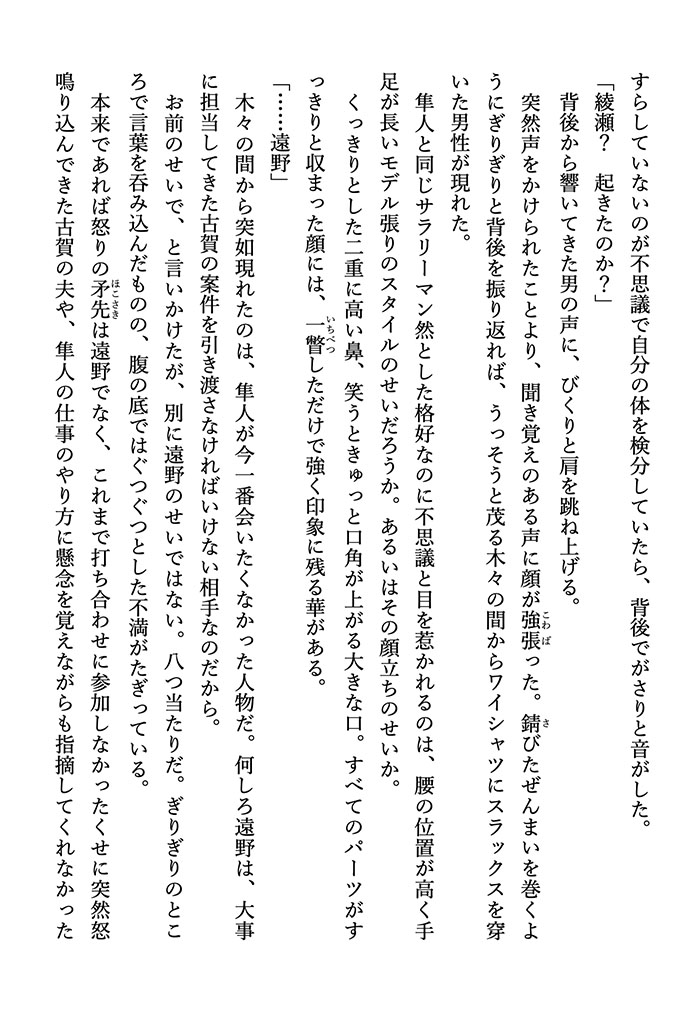 すらしていないのが不思議で自分の体を検分していたら、背後でがさりと音がした。
「綾瀬？　起きたのか？」
背後から響いてきた男の声に、びくりと肩を跳ね上げる。
突然声をかけられたことより、聞き覚えのある声に顔が強張った。錆びたぜんまいを巻くよ
うにぎりぎりと背後を振り返れば、うっそうと茂る木々の間からワイシャツにスラックスを穿
いた男性が現れた。
隼人と同じサラリーマン然とした格好なのに不思議と目を惹かれるのは、腰の位置が高く手
足が長いモデル張りのスタイルのせいだろうか。あるいはその顔立ちのせいか。
くっきりとした二重に高い鼻、笑うときゅっと口角が上がる大きな口。すべてのパーツがす
っきりと収まった顔には、一瞥しただけで強く印象に残る華がある。
「……遠野」
木々の間から突如現れたのは、隼人が今一番会いたくなかった人物だ。何しろ遠野は、大事
に担当してきた古賀の案件を引き渡さなければいけない相手なのだから。
お前のせいで、と言いかけたが、別に遠野のせいではない。八つ当たりだ。ぎりぎりのとこ
ろで言葉を呑み込んだものの、腹の底ではぐつぐつとした不満がたぎっている。
本来であれば怒りの矛先は遠野でなく、これまで打ち合わせに参加しなかったくせに突然怒
鳴り込んできた古賀の夫や、隼人の仕事のやり方に懸念を覚えながらも指摘してくれなかった